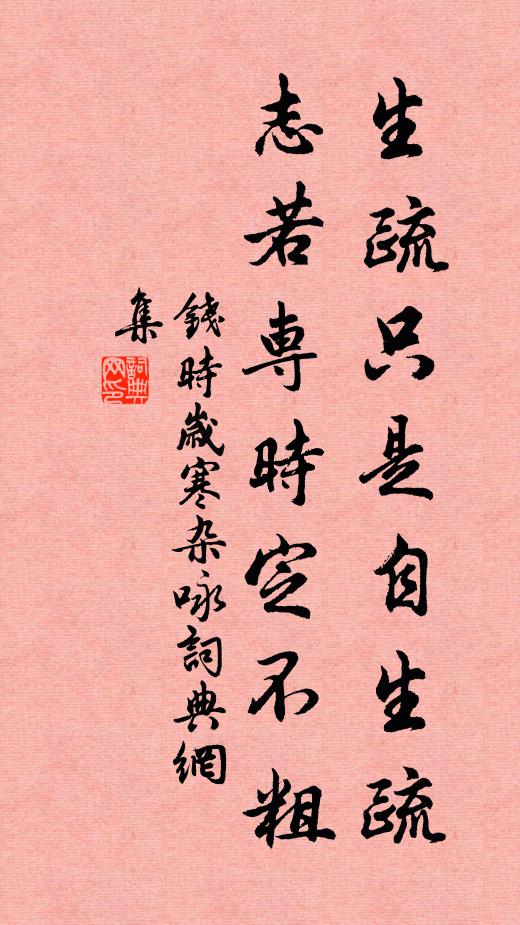 生疏只是自生疏
志若専時定不粗
錢時歲寒杂咏詞典網
集
詞典网印